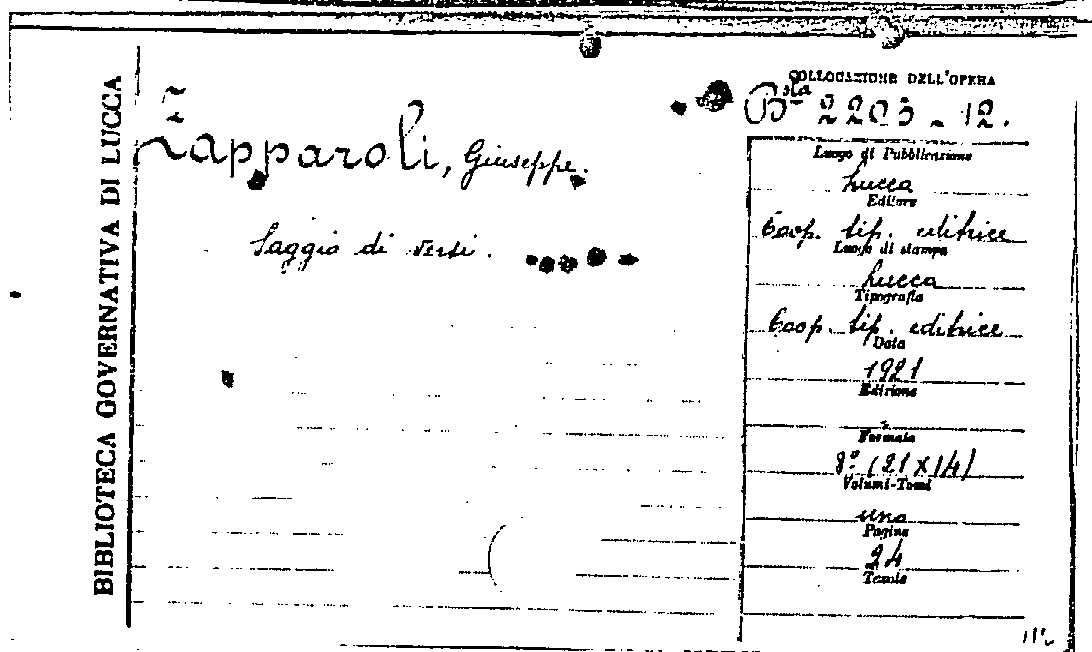 BIBLIOTECA GOVERNATIVA DI LUCCA
Zapparoli, Giuseppe.
Saggio di versi.
COLLOCAZIONE DELL'OPERA
Bsta 2203 - 12.
Luogo di Pubblicazione
Lucca
Editore
Coop. tip. editrice
Luogo di stampa
Lucca
Tipografia
Coop. tip. editrice
Data
1921
Edizione
Formato
8º (21 X 14)
Volumi-Tomi
uno
Pagine
24
Tavole